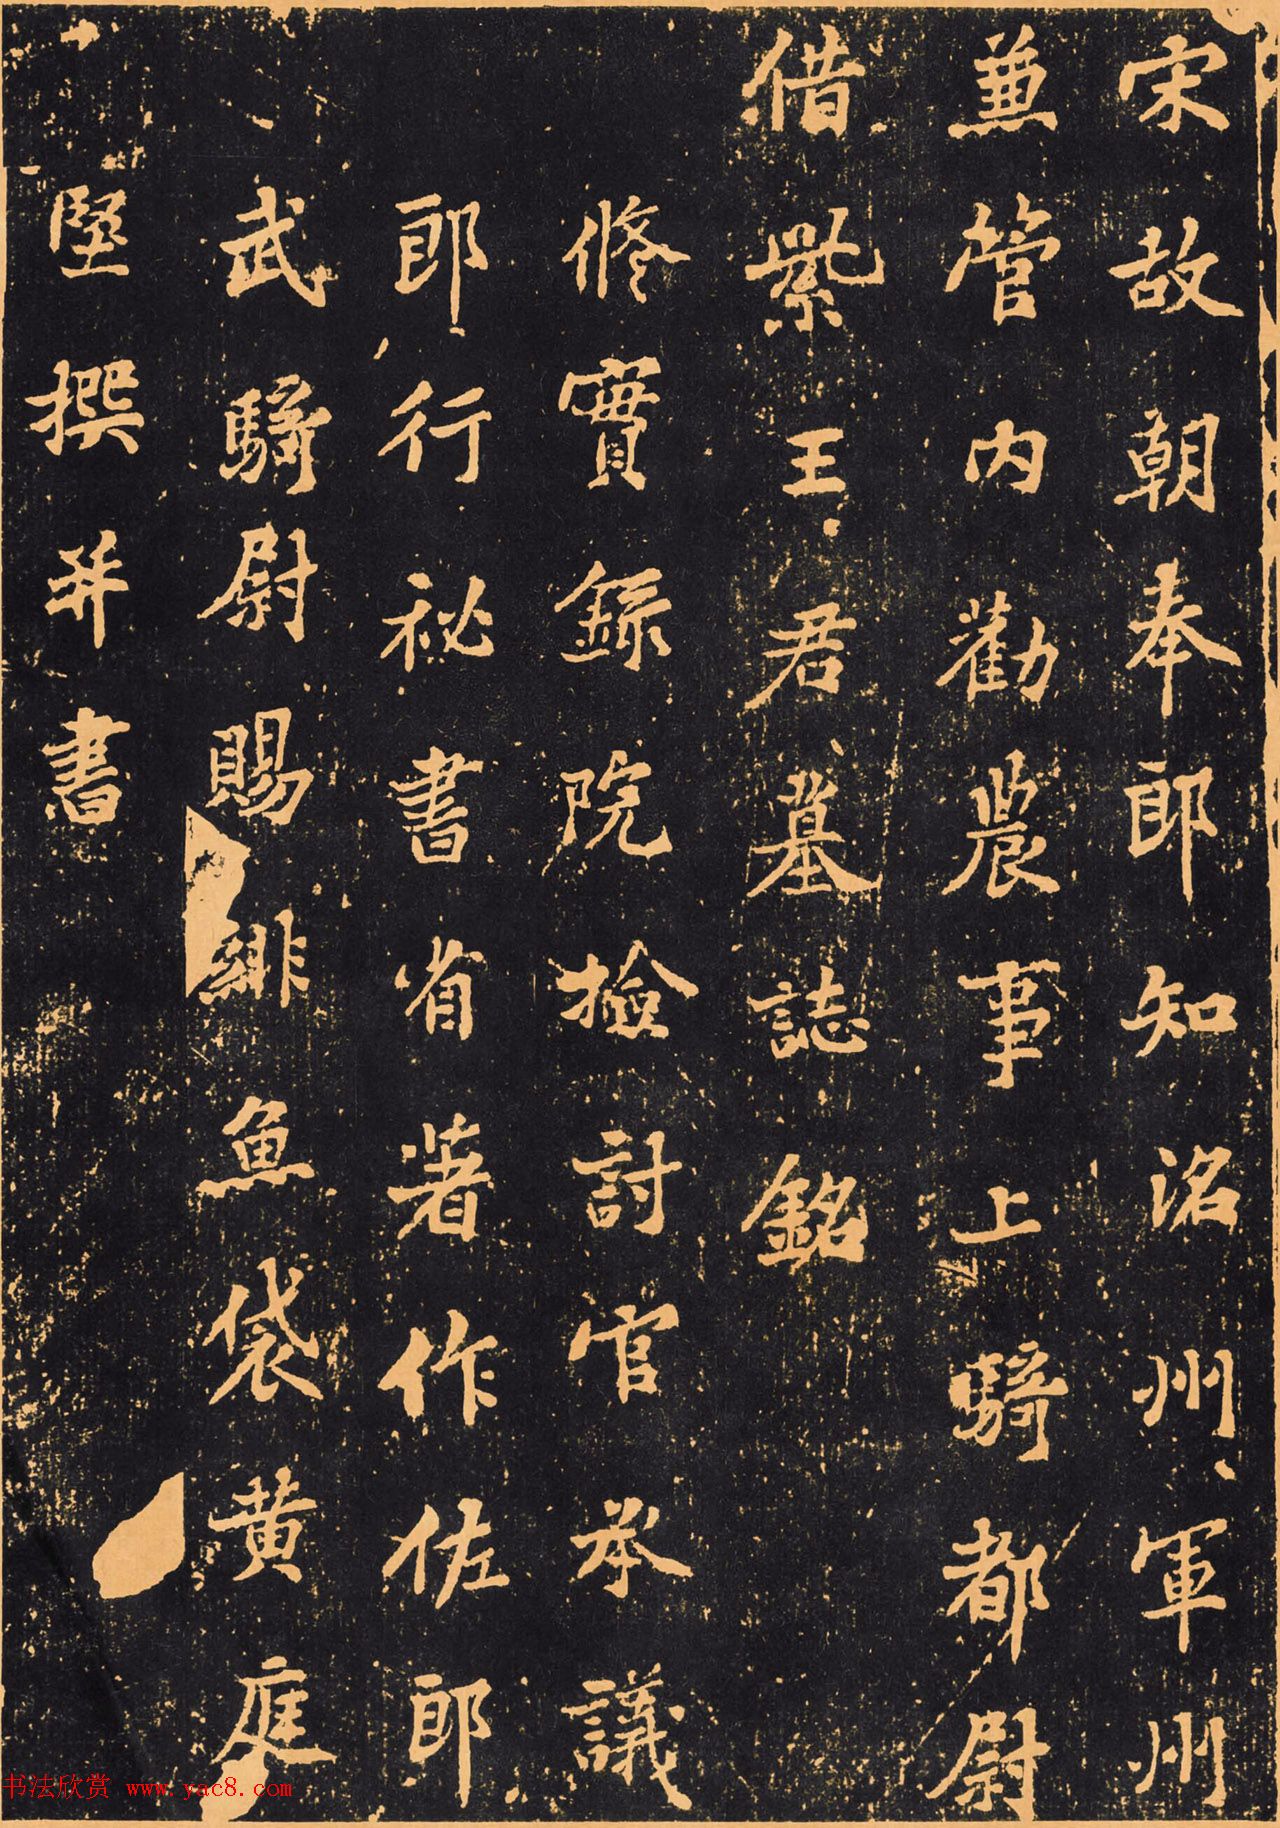 宋故朝奉郎知洺州軍州
兼管内勸農事上騎都尉
借紫王君墓誌銘
修實錄院撿討官承議
郎行祕書省著作佐郎
武騎尉賜緋魚袋黄庭
堅撰并書
书法欣赏 www.yac8.com